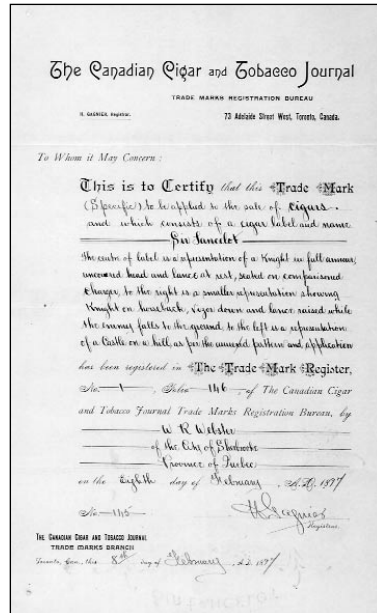 The Canadian Cigar and Tobacco Journal
TRADE MARKS REGISTRATION BUREAU
H. GAGNIER, Registrar.
73 Adelaide Street West, Toronto, Canada.
To Whom it May Concern:
This is to Certify that this Trade Mark
(Specific) to be applied to the sale of cigars.
and which consists of a cigar label and name
Sir Lancelot
The centre of label is a representation of a Knight in full armour,
uncovered head and lance at rest, seated on comparisoned
charger, to the right is a smaller representation showing
Knight on horseback, vizor down and lance raised while
the enemy falls to the ground, to the left is a representation
of a Castle on a hill, as per the annexed pattern and application
has been registered in The Trade Mark Register,
No. 1, Folio 146, of The Canadian Cigar
and Tobacco Journal Trade Marks Registration Bureau, by
W R Webster
of the City of Sherbrooke
Province of Quebec
on the Eighth day of February, A.D. 1897
No 145
Registrar
THE CANADIAN CIGAR AND TOBACCO JOURNAL
TRADE MARKS BRANCH
Toronto, Can., this 8th day of February A.D. 1897